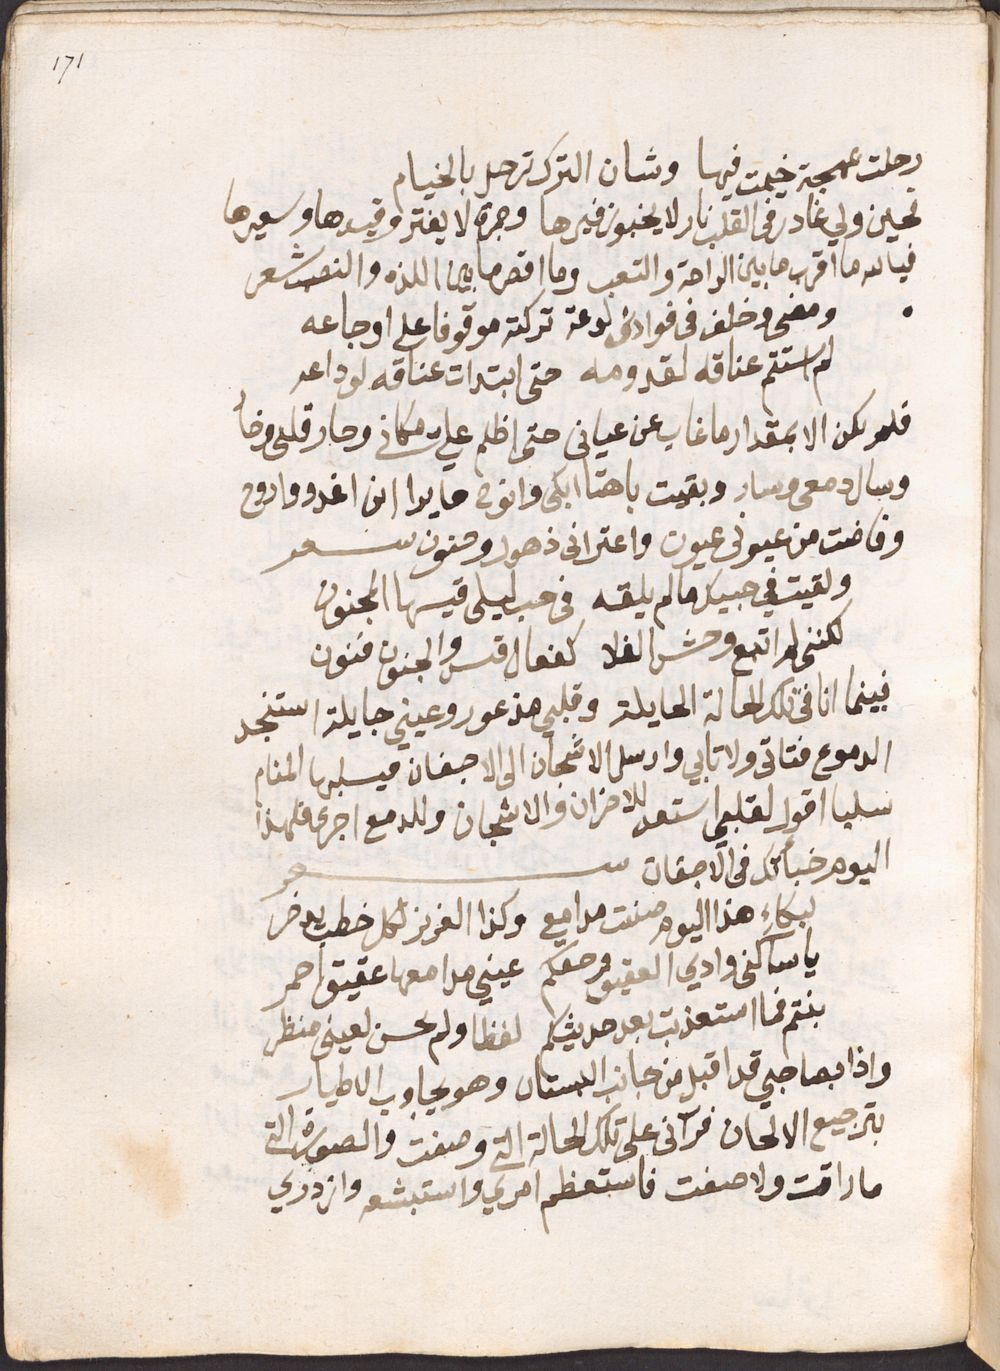 ١٧١
رحلت بمهجة خيمت فيها وشان الترك ترحل بالخيام
فحين ولي غادر في القلب نار لا يخبو زفيرها وجمرة لا يفتر وقيدها وسعيرها
فيالله ما اقرب ما بين الراحة والتعب وما اقصر ما بين اللذه والنصب شعر
ومضى وخلف في فوادي لوعة تركته موقوفا على اوجاعه
لم استتم عناقه لقدومه حتى ابتدات عناقه لوداعه
فلم يكن الا بمقدار ما غاب عن عياني حتى اظلم علي مكاني وحار قلبي
وسال دمعي وسار وبقيت باهتا ابكي وانوح حايرا اين اغدو واروح
وفاضت من عيوني عيون واعتراني ذهول وجنون شعر
ولقيت في حبيك ما لم يلقه في حب ليلى قيسها المجنون
لكنني لم اتبع وحش الفلا كفعال قيس والجنون فنون
فبينما انا في تلك الحالة الحايلة وقلبي مذعور وعيني جايلة استنجد
الدموع فتاتي ولا تابي وارسل الاشجان الى الاجفان فيسلبها المنام
سلبا اقول لقلبي استعد للاحزان والاشجان وللدمع اجر فلهذا
اليوم خبأتك في الاجفان شعر
لبكاء هذا اليوم صنت مدامعي وكذا العزيز لكل خطب يدخر
يا ساكني وادي العقيق وحقكم عيني مدامعها عقيق احمر
بنتم فما استعذبت بعد حديثكم لفظا ولم يحسن لعيني منظر
واذا بصاحبي قد اقبل من جانب البستان وهو يجاوب الاطيار
بترجيع الالحان فرآني على تلك الحالة التي وصفت والصورة التي
ما راقت ولا صفت فاستعظم امري واستبشعه وازدري